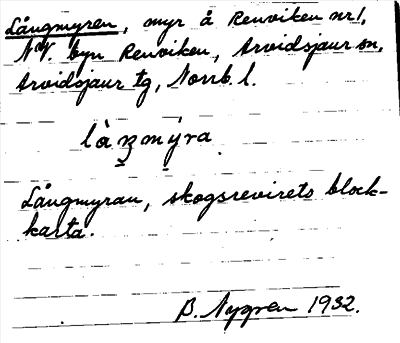 Långmyren, myr å Renviken nr 1,
NV. byn Renviken, Arvidsjaur sn,
Arvidsjaur tg, Norrb. l.
làŋmýra
Långmyran, skogsrevirets block-
karta.
B. Nygren 1932.